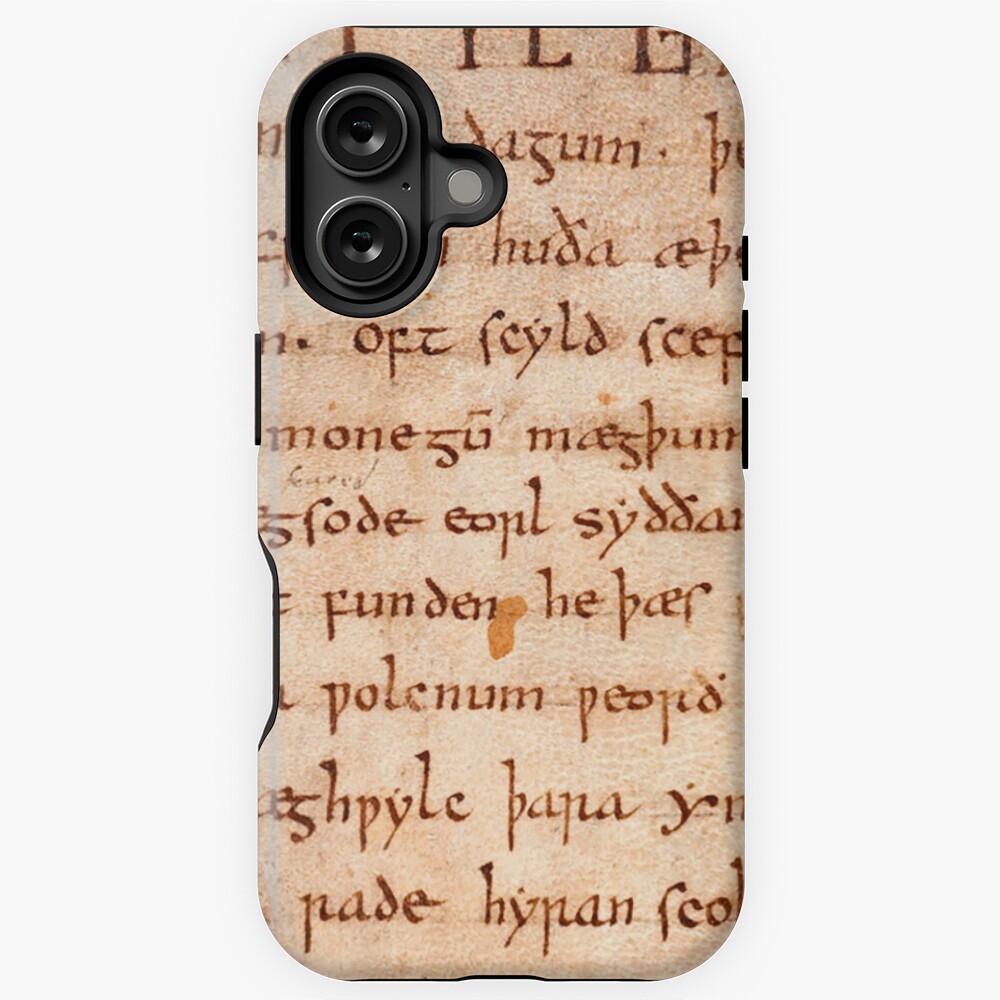 dagum. þe
huða æþe
n. oft scyld scef
monegū mægþum
gsode eorl syððan
funden he þæs
ƿolcnum ƿeorð
æghƿylc þara ym
rade hyran scol